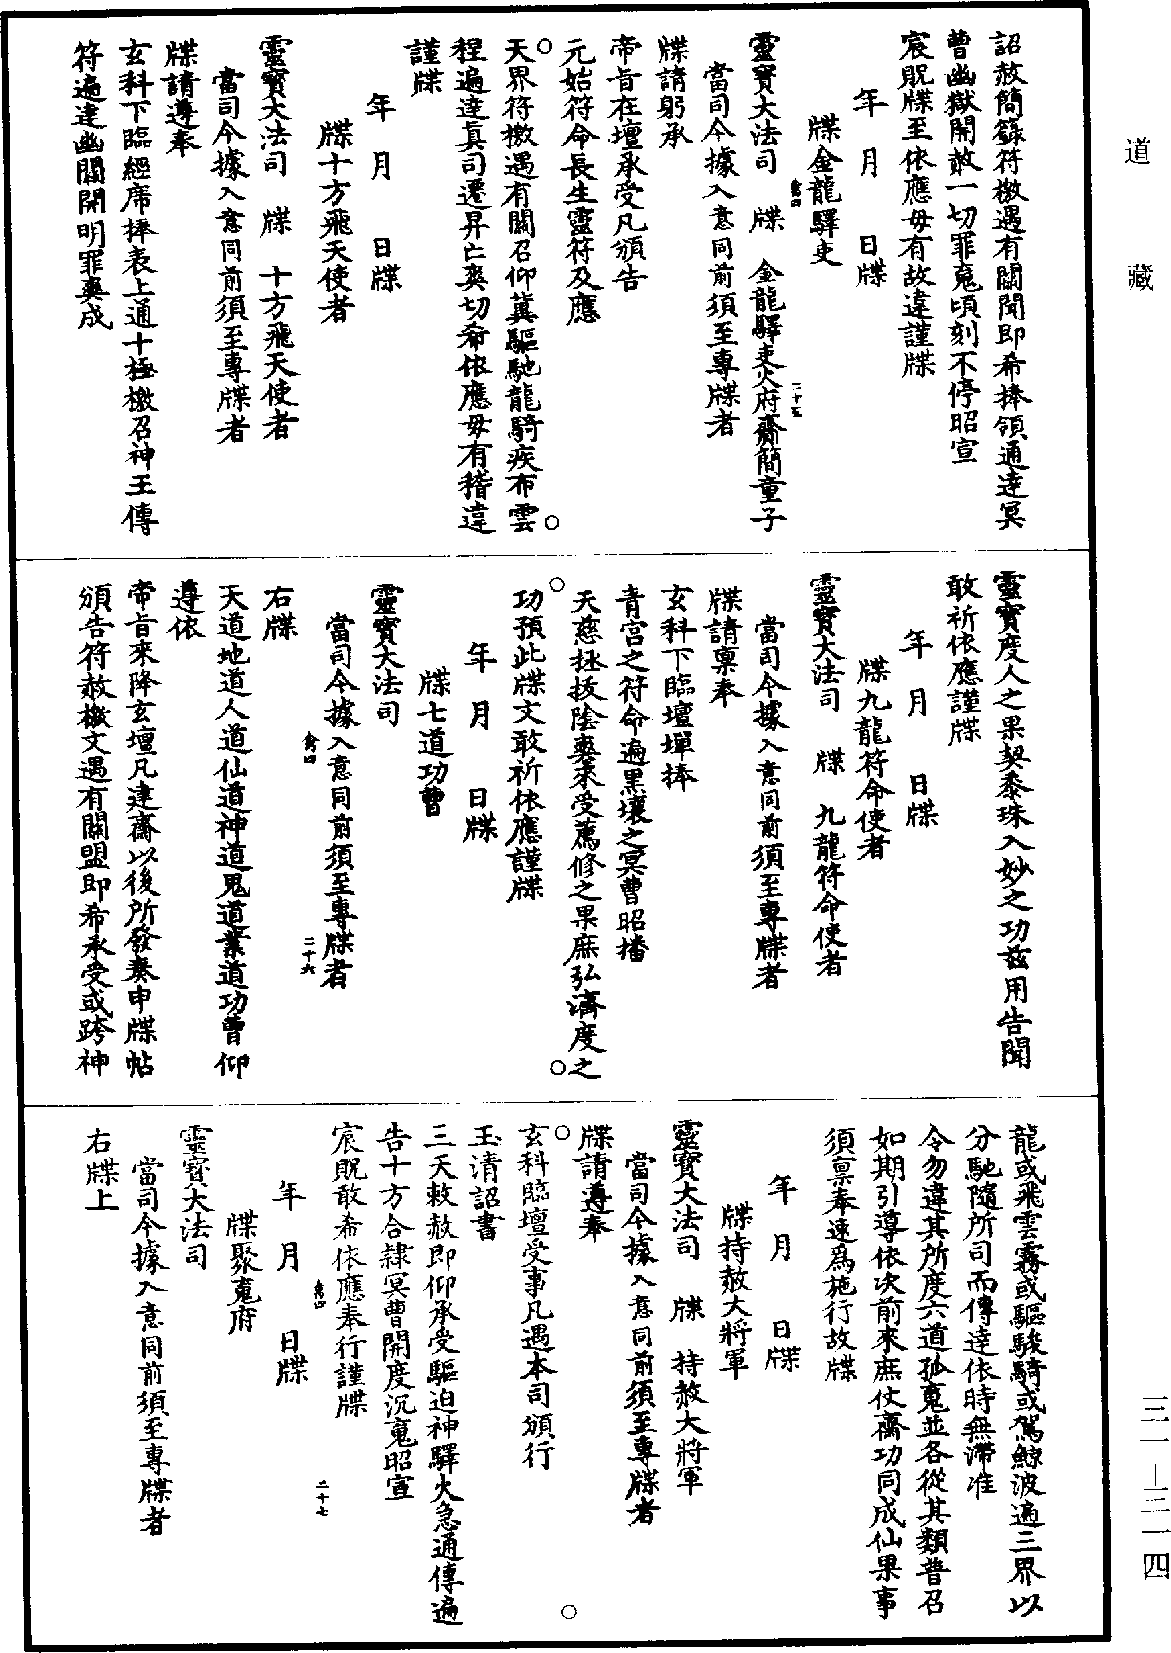 道藏
詔赦簡籙符檄遇有關聞即希捧領通達冥
曹幽獄開赦一切罪䰟頃刻不停昭宣
宸貺牒至依應毋有故違謹牒
年　月　日牒
牒金龍驛吏
靈寶大法司　牒　金龍驛吏火府齋簡童子
當司今據入意同前須至專牒者
牒請躬承
帝旨在壇承受凡頒告
元始符命長生靈符及應
天界符檄遇有關召仰冀驅馳龍騎疾布雲
程遍達真司遷昇亡爽切希依應毋有稽違
謹牒
年　月　日牒
牒十方飛天使者
靈寶大法司　牒　十方飛天使者
當司今據入意同前須至專牒者
牒請遵奉
玄科下臨經席捧表上通十極檄召神王傳
符遍達幽關開明罪爽成
靈寶度人之果契黍珠入妙之功兹用告聞
敢祈依應謹牒
年　月　日牒
牒九龍符命使者
靈寶大法司　牒　九龍符命使者
當司今據入意同前須至專牒者
牒請稟奉
玄科下臨壇墠捧
青宮之符命遍黑壤之冥曹昭播
天慈拯拔陰爽來受薦修之果庶弘濟度之
功預此牒文敢祈依應謹牒
年　月　日牒
牒七道功曹
靈寶大法司
當司今據入意同前須至專牒者
二十六
右牒
天道地道人道仙道神道鬼道業道功曹仰
遵依
帝旨來降玄壇凡建齋以後所發奏申牒帖
頒告符赦檄文遇有關盟即希承受或跨神
龍或飛雲霧或驅駿騎或駕鯨波遍三界以
分馳隨所司而傳達依時無滯准
令勿違其所度六道孤䰟並各從其類普召
如期引導依次前來庶仗齋功同成仙果事
須稟奉速爲施行故牒
年　月　日牒
牒持赦大將軍
靈寶大法司　牒　持赦大將軍
當司今據入意同前須至專牒者
牒請遵奉
玄科臨壇受事凡遇本司頒行
玉清詔書
三天敕赦即仰承受驅迫神驛火急通傳遍
告十方合隸冥曹開度沉䰟昭宣
宸貺敢希依應奉行謹牒
二十七
年　月　日牒
牒聚䰟府
靈寶大法司
當司今據入意同前須至專牒者
右牒上
三一—三一四